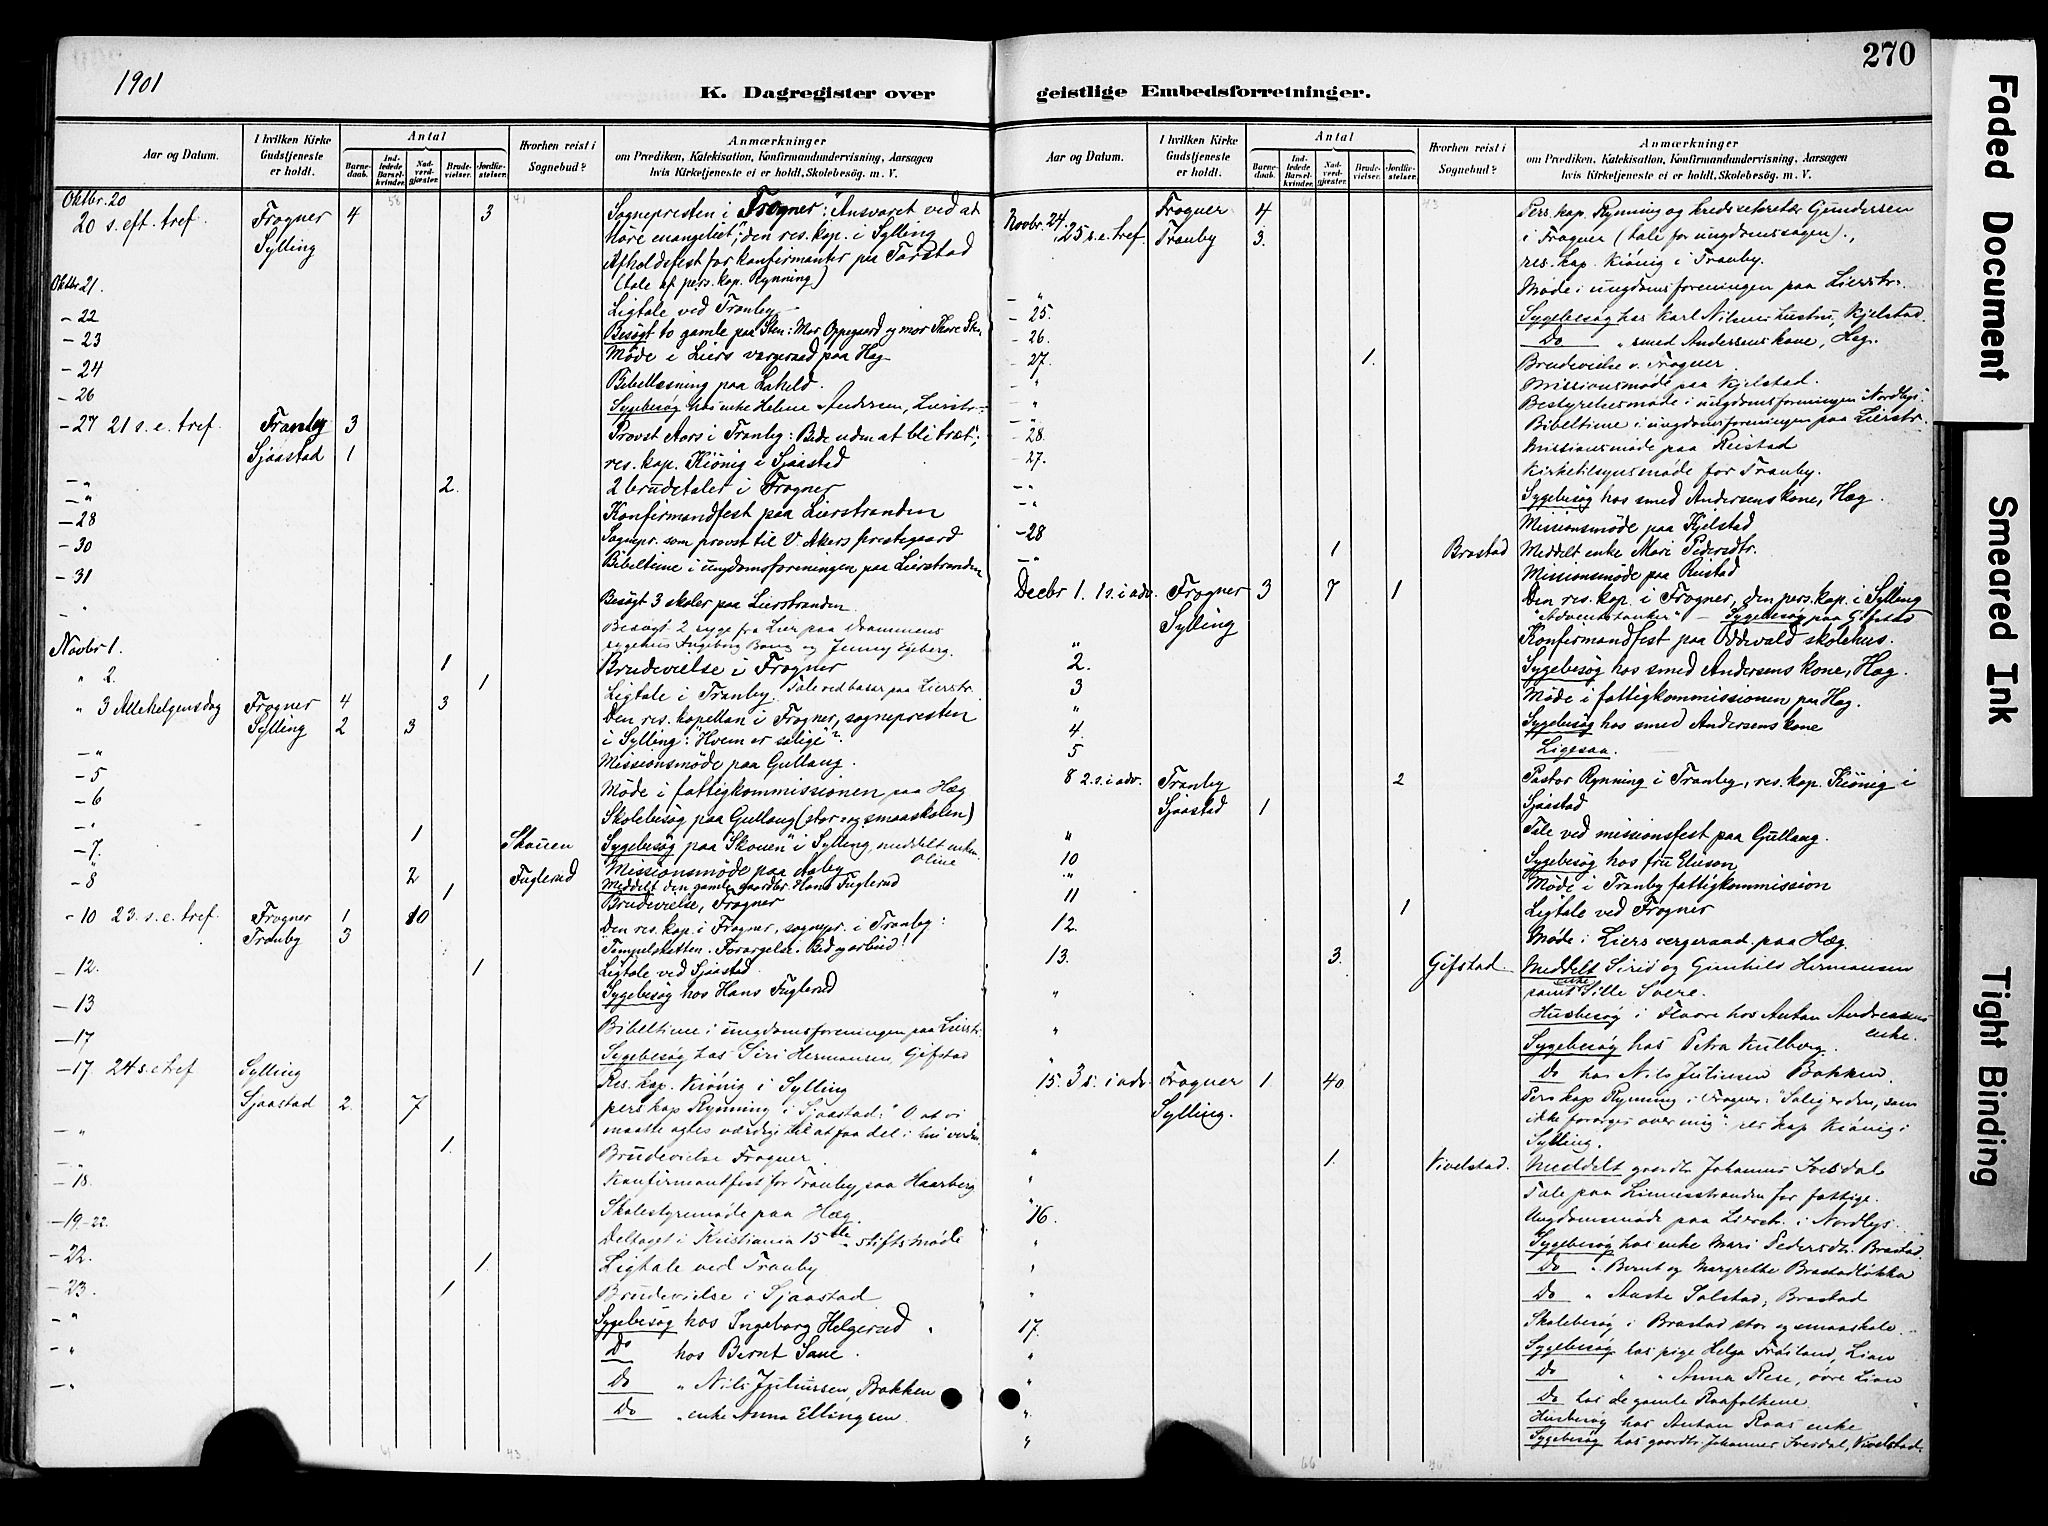 1901
270
K. Dagregister over geistlige Embedsforretninger.
Aar og Datum.
I hvilken Kirke Gudstjeneste er holdt.
Antal
Barnedaab.
Indledede Barselkvinder.
Nadverdgjæster.
Brudevielser.
Jordfæstelser.
Hvorhen reist i Sognebud?
Anmærkninger
om Prædiken, Katekisation, Konfirmandundervisning, Aarsagen
hvis Kirketjeneste ei er holdt, Skolebesøg. m. V.
58 41
Oktbr. 20
20 s. eft. tref. Frogner 4 3 Sognepresten i Frogner: "Ansvaret ved at
Sylling høre evangeliet"; den res. kap. i Sylling
Afholdsfest for konfirmanter paa Torstad
Oktbr 21. (tale af pers. kap. Rynning)
Ligtale ved Tranby
- 22 Besøgt to gamle paa Sten: Mor Oppegaard og mor Thore
- 23 Møde i Liers vergeraad paa Hæg
- 24 Bibellæsning paa
- 26 Sygebesøg hos enke Helene Andersen, Lierstr.
- 27 21 s. e. tref. Tranby 3 Provst Aars i Tranby: Bede uden at bli træt";
Sjaastad 1 res. kap. Kiönig i Sjaastad
- " 2. 2 brudetaler i Frogner
- " Konfirmandfest paa Lierstranden
- 28 Sognepr. som provst til V. Akers prestegaard
- 30 Bibeltime i ungdomsforeningen paa Lierstranden
- 31
" Besøgt 3 skoler paa Lierstranden
Besøgt 2 syge fra Lier paa Drammens
Novbr 1. sygehus Ingeborg og Jenny Egeberg.
" 2. 1 Brudevielse i Frogner
1 Ligtale i Tranby. Tale ved basar paa Lierstr.
" 3 Allehelgensdag Frogner 4 3 Den res. kapellan i Frogner, sognepresten
Sylling 2 3 i Sylling: "Hvem er salige"?
- " Missionsmøde paa Gullaug.
- 5 Møde i fattigkommissionen paa Hæg
- 6 Skolebesøg paa Gullaug (stor- og smaaskolen)
- " 1 Skouen Sygebesøg paa "Skouen" i Sylling, meddelt enken Oline
- 7. Missionsmøde paa Aaby
- 8 2 Fuglerud Meddelt den gamle gaardbr. Hans Fuglerud
1 Brudevielse, Frogner
- 10 23. s. e. tref. Frogner 1 10 Den res. kap. i Frogner, sognepr. i Tranby:
Tranby 3 "Tempelskatten. Forargelse. Bed og arbeid!
- 12. 1 Ligtale ved Sjaastad
- 13 Sygebesøg hos Hans Fuglerud
Bibeltime i ungdomsforeningen paa Lierstr.
- 17 Sygebesøg hos Siri Hermansen, Gifstad
- 17 24 s. e. tref Sylling Res. kap. Kiönig i Sylling
Sjaastad 2. 7 pers kap Rynning i Sjaastad: "O at vi
- " maatte agtes værdige til at faa del i hin verden
1. Brudevielse Frogner
- " Konfirmantfest for Tranby, paa Haarberg
- 18. Skolestyremøde paa Hæg
- 19-22. Deltaget i Kristiania 15de stiftsmøde
- 22. 1. Ligtale ved Tranby
- 23. 1 Brudevielse i Sjaastad
- " Sygebesøg hos Ingeborg Helgerud
- " Do hos Bernt Saue.
- " Do " Nils Juliussen, Bakken
Do " enke Anna Ellingsen
61 43
61 43
Novbr. 24. Frogner 4 Pers. kap. Rynning og kredssekretær Gundersen
25 s. e. tref. Tranby 3. i Frogner (tale for ungdomssagen).,
res. kap. Kiönig i Tranby.
- " Møde i ungdomsforeningen paa Lierstr.
- 25. Sygebesøg hos Karl Nilsens hustru, Kjelstad
- 26. Do " smed Andersens kone, Hæg.
- 27. 1. Brudevielse v. Frogner.
" Missionsmøde paa Kjelstad.
- " Bestyrelsesmøde i ungdomsforeningen "Nordlys".
- " Bibeltime i ungdomsforeningen paa Lierstr.
- 28. Missionsmøde paa Reistad
- 27. Kirketilsynsmøde for Tranby.
- " Sygebesøg hos smed Andersens kone, Hæg.
- " Missionsmøde paa Kjelstad
- 28 1 Brastad Meddelt enke Mari Pedersdtr.
- " Missionsmøde paa Reistad
Decbr 1. 1 s. i adv. Frogner 3 7 1 Den res. kap. i Frogner, den pers. kap. i Sylling
Sylling "Adventstanker" - Sygebesøg paa Gifstad
" Konfirmandfest paa Oddevald skolehus.
2. Sygebesøg hos smed Andersens kone, Hæg.
3 Møde i fattigkommissionen paa Hæg.
" Sygebesøg hos smed Andersens kone
4. Ligesaa.
5
8 2. s. i adv. Tranby 2 Pastor Rynning i Tranby, res. kap. Kiönig i
Sjaastad 1 Sjaastad
" Tale ved missionsfest paa Gullaug.
10 Sygebesøg hos fru Elieson
" Møde i Tranby fattigkommission
11 1 Ligtale ved Frogner
12. Møde i Liers vergeraad paa Hæg.
13. 3. Gifstad Meddelt Siri og Gunhild Hermansen
" samt enke Sille Svere.
" Husbesøg i hos Anton Andreasens enke.
Sygebesøg hos Petra Kulberg.
" Do hos Nils Juliusen Bakken.
15. 3 s. i adv. Frogner 1 40 Pers kap Rynning i Frogner: "Salig er den, som
Sylling. ikke forarges over mig" res kap Kiönig i
Sylling.
" 1. Kivelstad. Meddelt gaardbr Johannes Ivesdal
" Tale paa Liernesstranden for fattige.
16. Ungdomsmøde paa Lierstr. i Nordlys
" Sygebesøg hos enke Mari Pedersdtr. Brastad.
" Do " Bernt og Margrethe Brastadløkka
" Do " Aaste Solstad, Brastad
17. Skolebesøg i Brastad stor og smaaskole.
" Sygebesøg hos pige Helga Frøiland, Lian
Do " " Anna Rese, øvre Lian
" Do hos de gamle Raafolkene
Husbesøg hos Anton Raas enke
" Sygebesøg hos gaardbr Johannes Ivesdal, Kivelstad.
66 46
Faded Document
Smeared Ink
Tight Binding